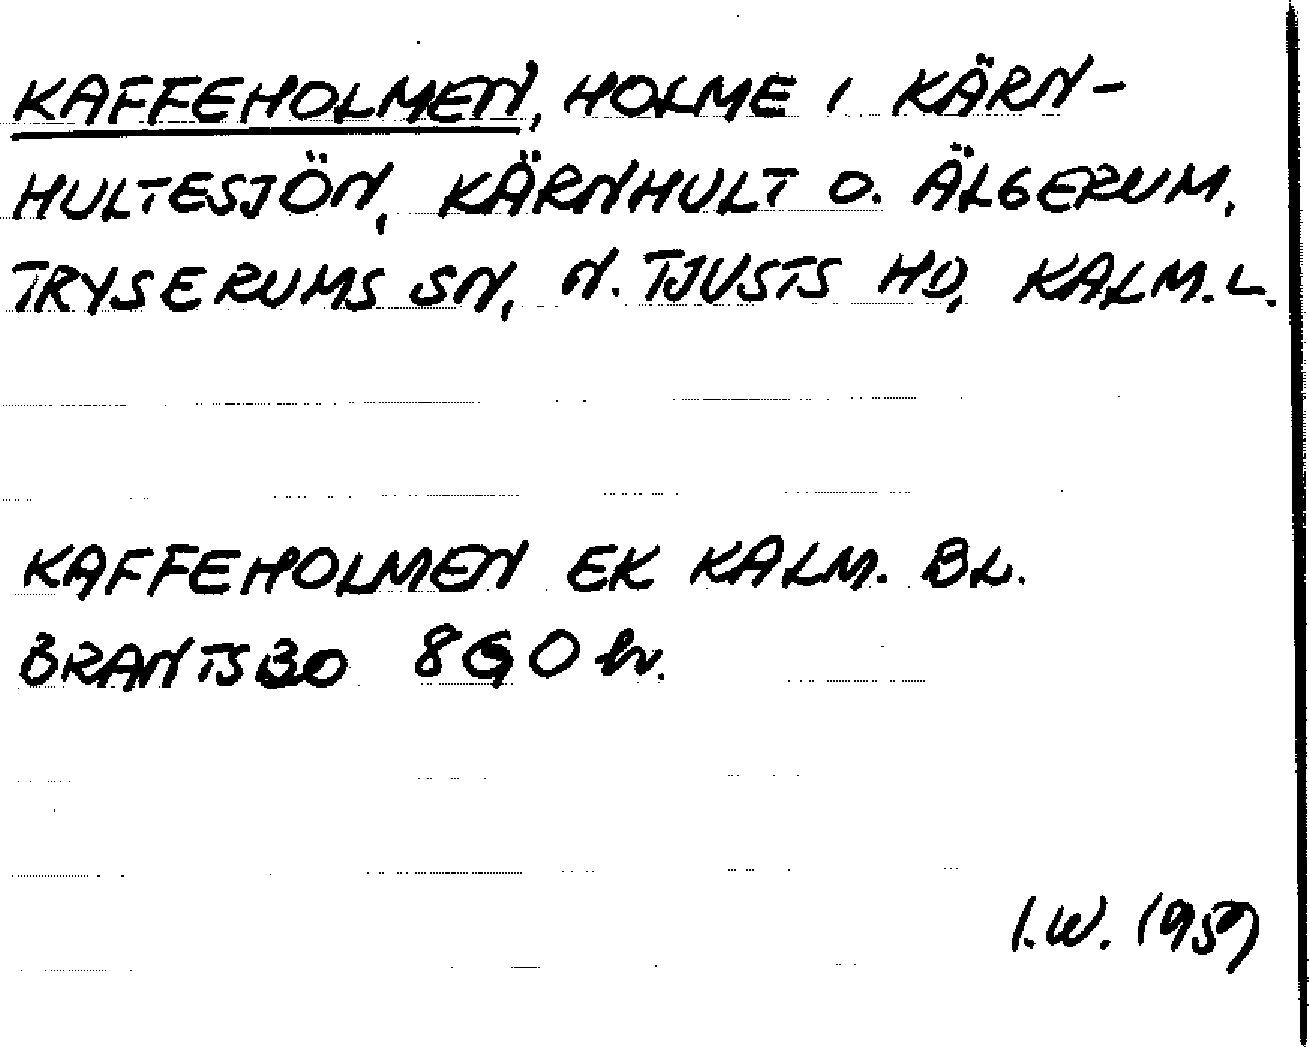 KAFFEHOLMEN, HOLME I KÄRN-
HULTESJÖN, KÄRNHULT O. ÄLGERUM,
TRYSERUMS SN, N. TJUSTS HD, KALM. L.
KAFFEHOLMEN EK KALM. BL.
BRANTSBO
I.W. 1959